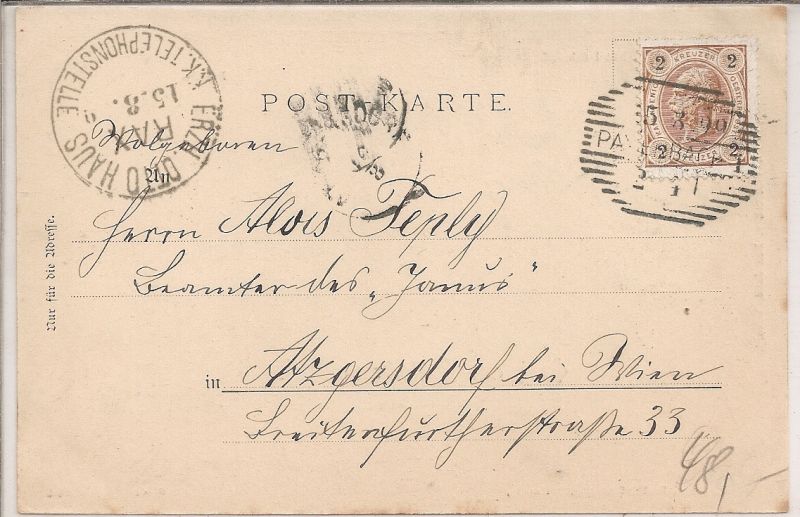 POSTKARTE.
K.K. TELEPHONSTELLE
ERZH. OTTO HAUS
RAX
15.8.
KREUZER
2 2
2 2
5 8 99
PAYERBACH
Wolgeboren
An
Herrn Alois Teply
Beamter des „Janus"
in Atzgersdorf bei Wien
Breitenfurtherstraße 33
Nur für die Adresse.
48,-